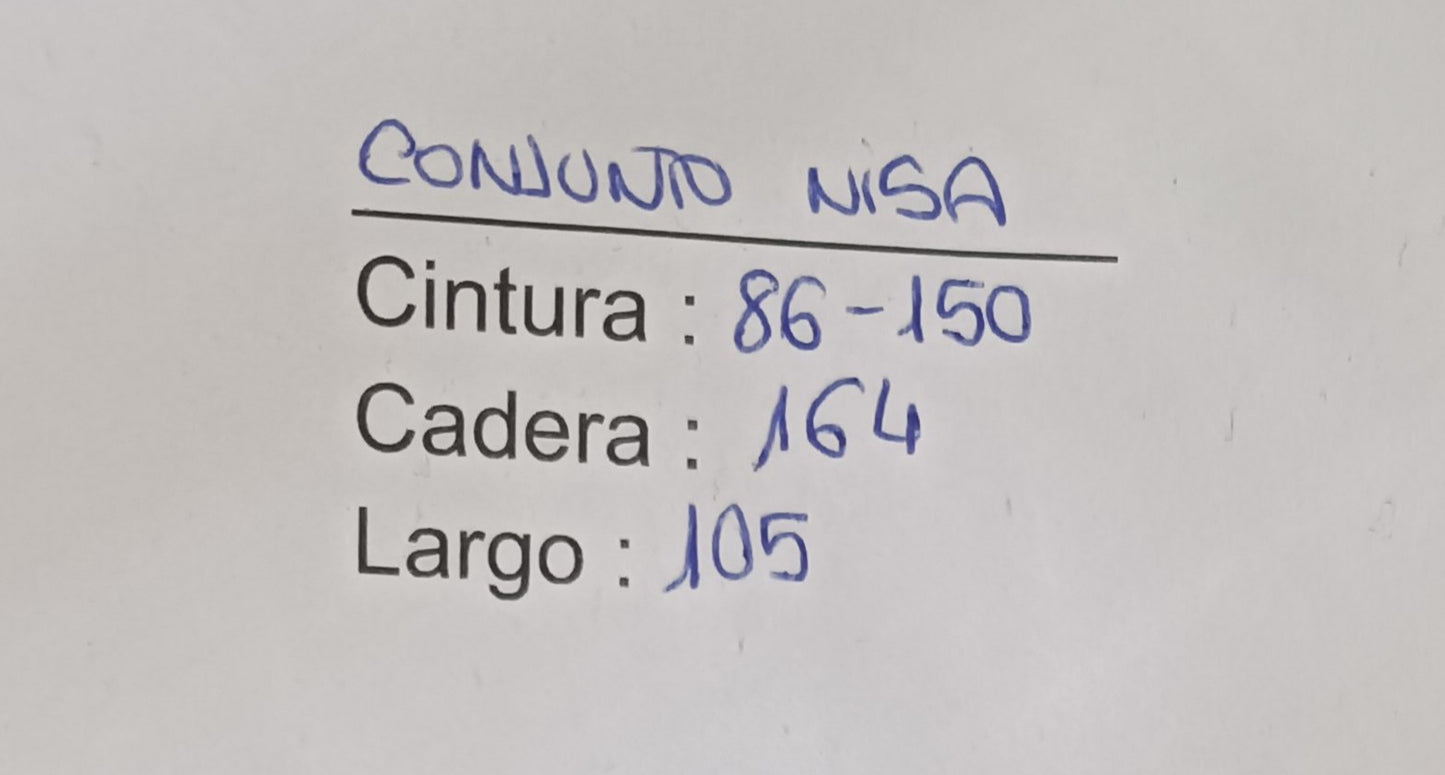 CONJUNTO NISA
Cintura : 86-150
Cadera : 164
Largo : 105